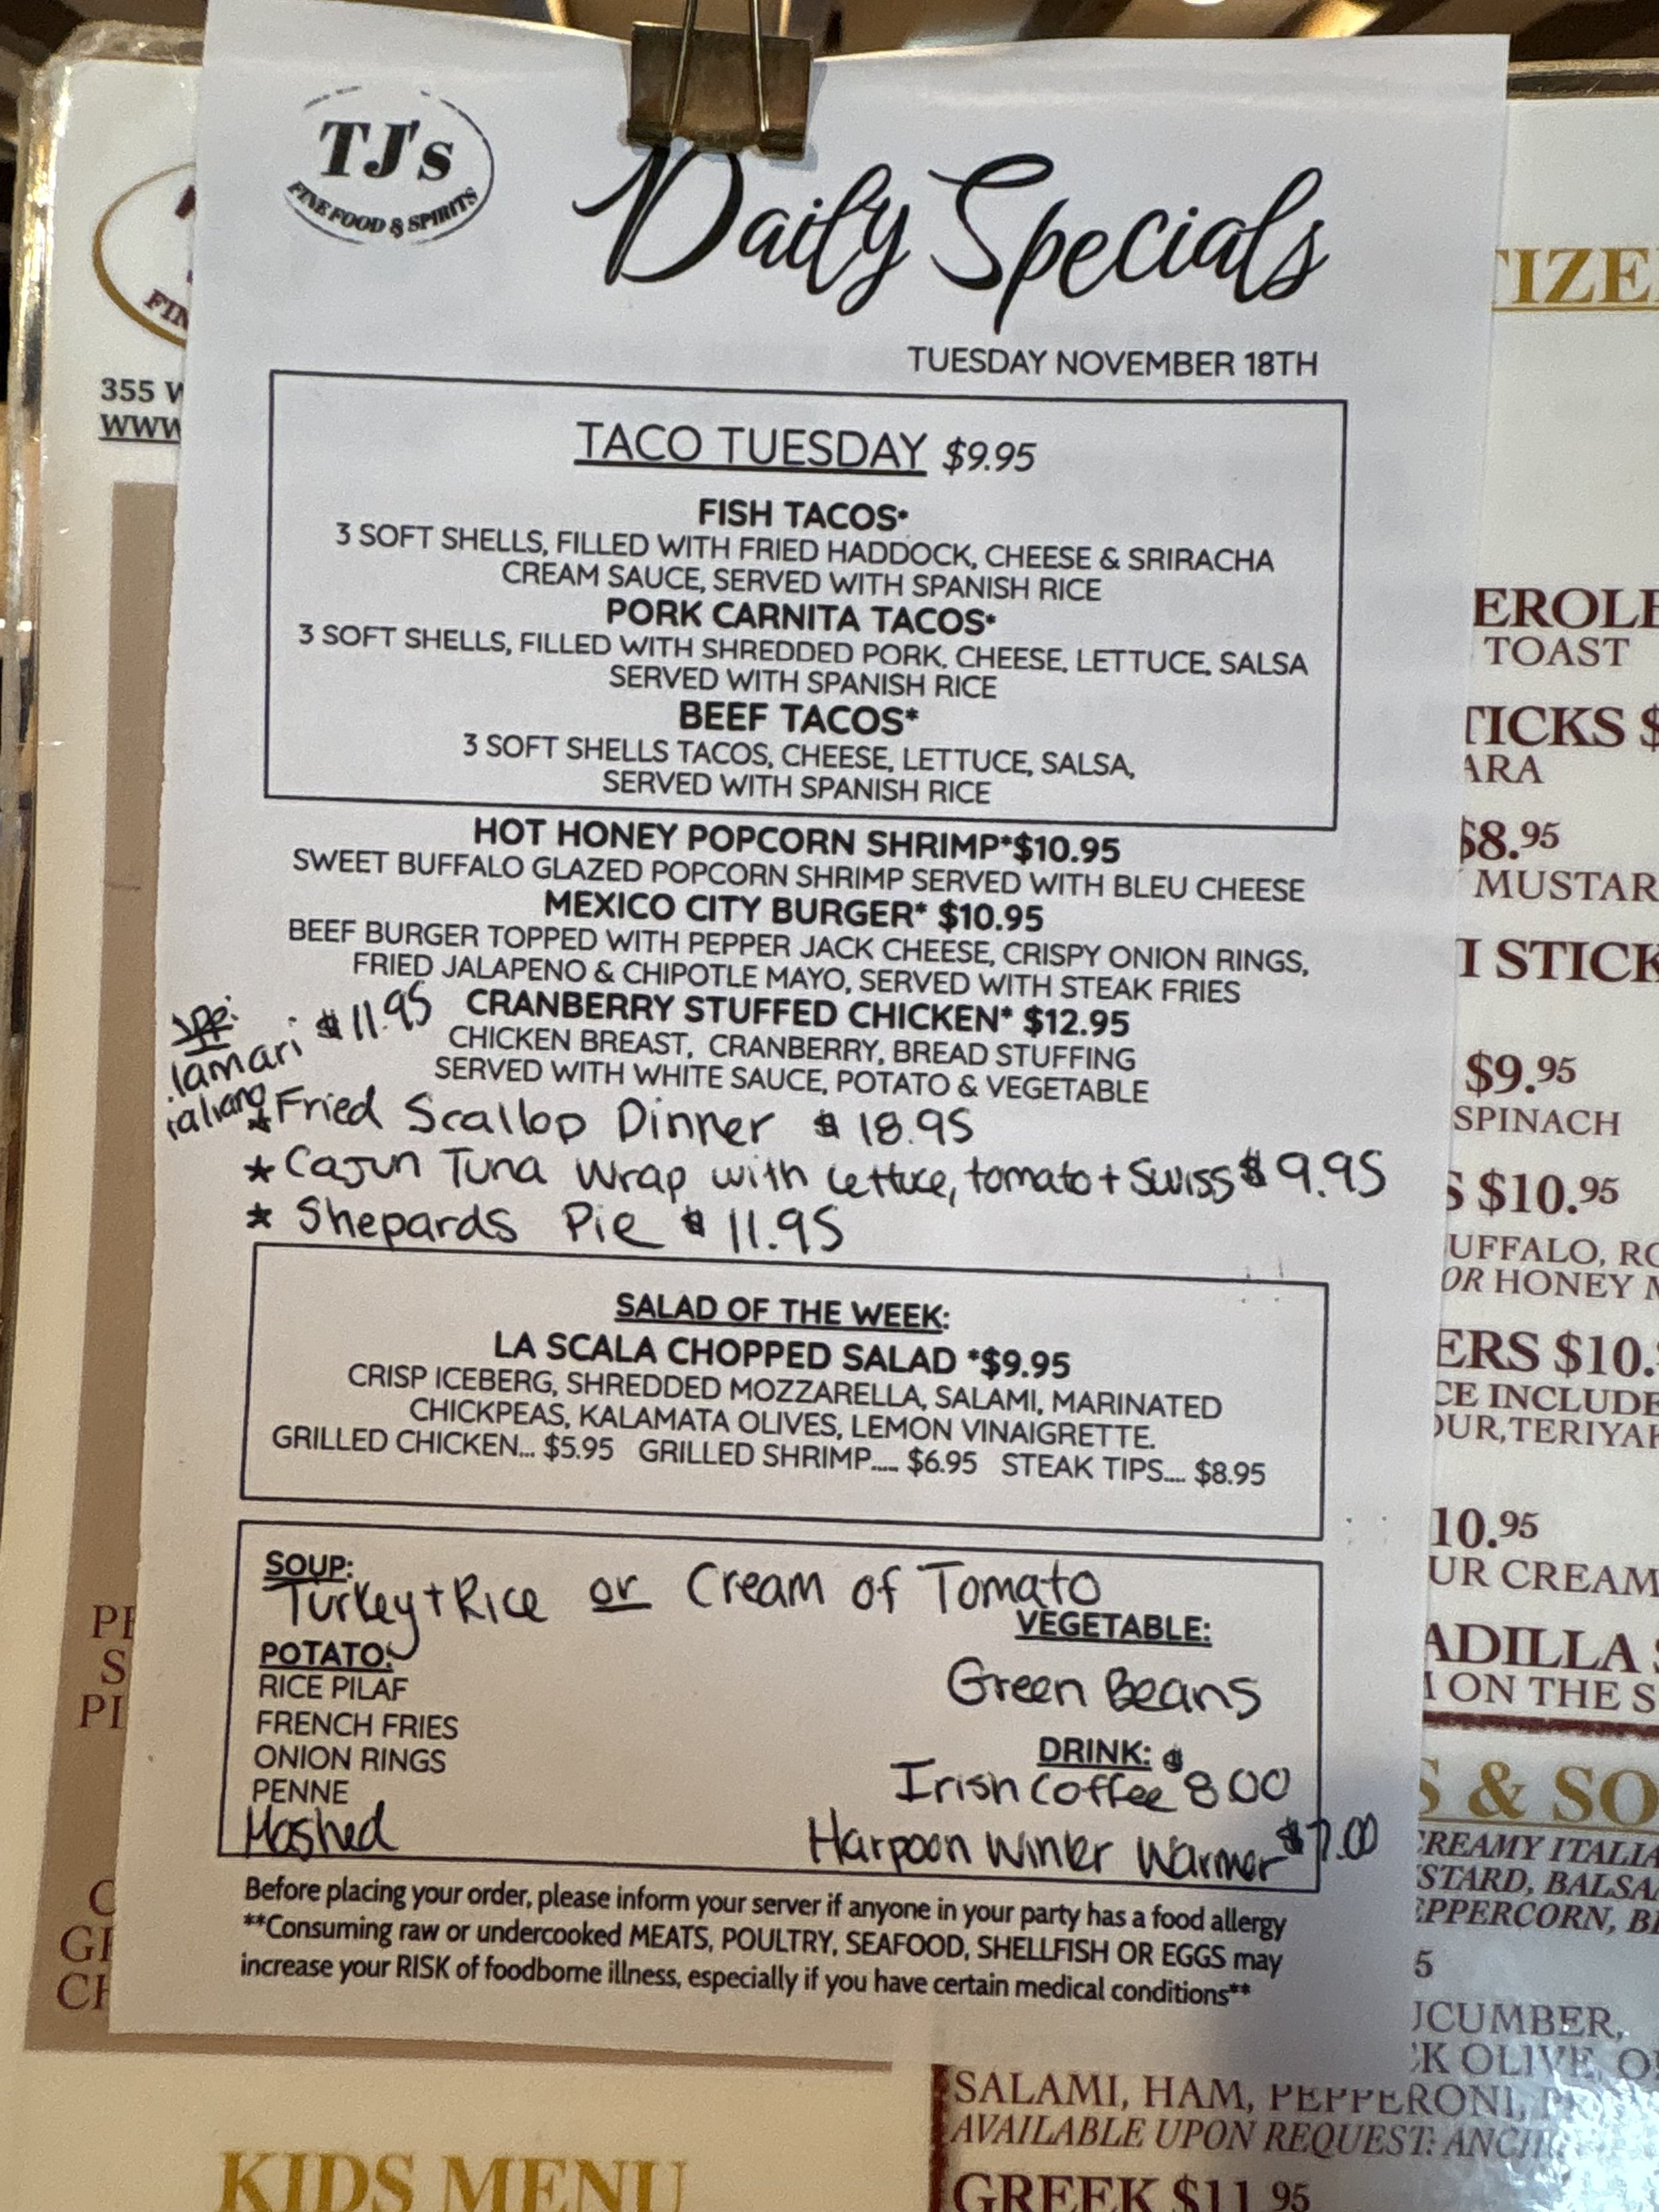 TJ's
FINE FOOD & SPIRITS
Daily Specials
TUESDAY NOVEMBER 18TH
TACO TUESDAY $9.95
FISH TACOS*
3 SOFT SHELLS, FILLED WITH FRIED HADDOCK, CHEESE & SRIRACHA
CREAM SAUCE, SERVED WITH SPANISH RICE
PORK CARNITA TACOS*
3 SOFT SHELLS, FILLED WITH SHREDDED PORK, CHEESE, LETTUCE, SALSA
SERVED WITH SPANISH RICE
BEEF TACOS*
3 SOFT SHELLS TACOS, CHEESE, LETTUCE, SALSA,
SERVED WITH SPANISH RICE
HOT HONEY POPCORN SHRIMP*$10.95
SWEET BUFFALO GLAZED POPCORN SHRIMP SERVED WITH BLEU CHEESE
MEXICO CITY BURGER* $10.95
BEEF BURGER TOPPED WITH PEPPER JACK CHEESE, CRISPY ONION RINGS,
FRIED JALAPENO & CHIPOTLE MAYO, SERVED WITH STEAK FRIES
CRANBERRY STUFFED CHICKEN* $12.95
CHICKEN BREAST, CRANBERRY, BREAD STUFFING
SERVED WITH WHITE SAUCE, POTATO & VEGETABLE
lamari $11.95
*Fried Scallop Dinner $18.95
*Cajun Tuna Wrap with lettuce, tomato + Swiss $9.95
* Shepards Pie $11.95
SALAD OF THE WEEK:
LA SCALA CHOPPED SALAD *$9.95
CRISP ICEBERG, SHREDDED MOZZARELLA, SALAMI, MARINATED
CHICKPEAS, KALAMATA OLIVES, LEMON VINAIGRETTE.
GRILLED CHICKEN... $5.95 GRILLED SHRIMP..... $6.95 STEAK TIPS.... $8.95
SOUP:
Turkey + Rice or Cream of Tomato
POTATO:
RICE PILAF
FRENCH FRIES
ONION RINGS
PENNE
Mashed
VEGETABLE:
Green Beans
DRINK:
Irish Coffee $8.00
Harpoon Winter Warmer $7.00
Before placing your order, please inform your server if anyone in your party has a food allergy
**Consuming raw or undercooked MEATS, POULTRY, SEAFOOD, SHELLFISH OR EGGS may
increase your RISK of foodborne illness, especially if you have certain medical conditions**
355 W
WWW
KIDS MENU
TIZE
EROLE
TOAST
TICKS $
ARA
$8.95
MUSTAR
I STICK
$9.95
SPINACH
S $10.95
UFFALO, RO
OR HONEY M
ERS $10.
CE INCLUDE
OUR, TERIYAK
10.95
UR CREAM
ADILLA $
ON THE S
S & SO
CREAMY ITALIA
STARD, BALSA
EPPERCORN, BL
5
UCUMBER,
CK OLIVE, O
SALAMI, HAM, PEPPERONI,
AVAILABLE UPON REQUEST:
GREEK $11.95